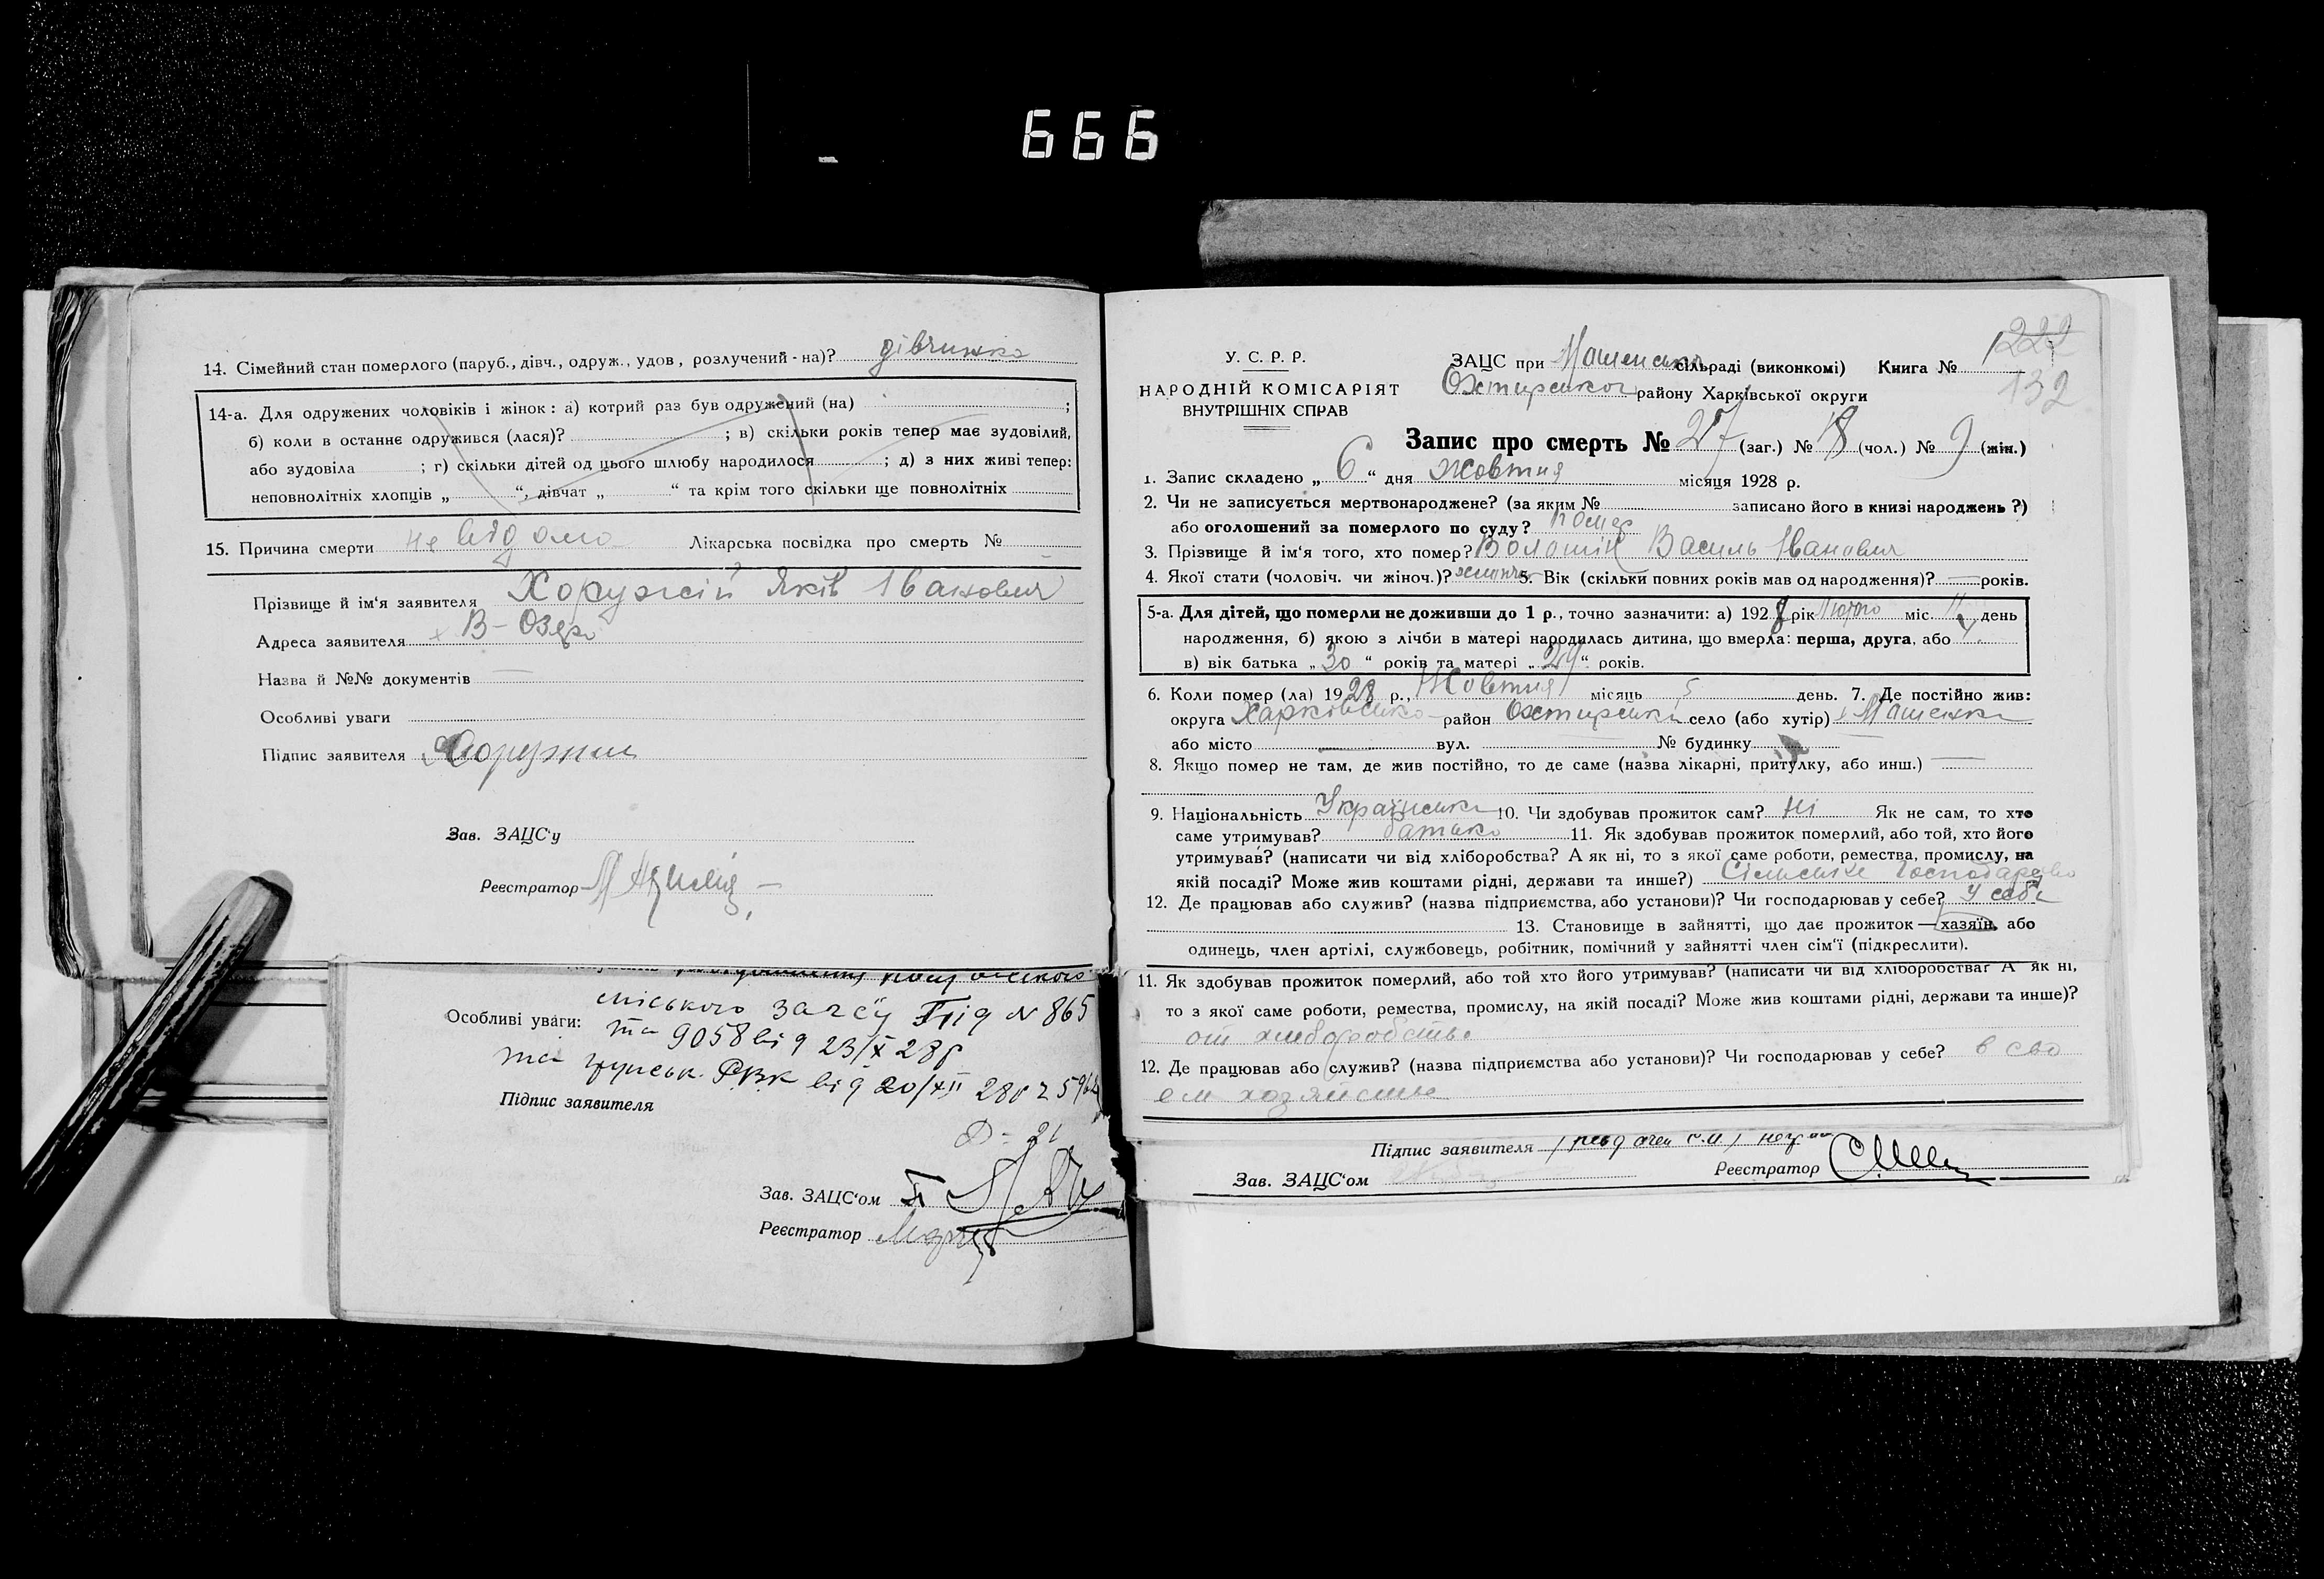 666
14. Сімейний стан померлого (паруб., дівч., одруж., удов, розлучений - на)? дівчинка
14-а. Для одружених чоловіків і жінок: а) котрий раз був одружений (на) ;
б) коли в останнє одружився (лася)? ; в) скільки років тепер має зудовілий,
або зудовіла ; г) скільки дітей од цього шлюбу народилося ; д) з них живі тепер:
неповнолітніх хлопців „ “, дівчат „ “ та крім того скільки ще повнолітніх
15. Причина смерти не відомо Лікарська посвідка про смерть № —
Прізвище й ім'я заявителя Хоружий Яків Іванович
Адреса заявителя х В-Озеро
Назва й №№ документів —
Особливі уваги
Підпис заявителя Хоружий
Зав. ЗАЦС'у
Реєстратор
міського загсу від № 865
Особливі уваги: та 9058 від 23/X 28р
та РВК від 20/XII 28р
Підпис заявителя
Зав. ЗАЦС'ом
Реєстратор
222
132
У. С. Р. Р.
НАРОДНІЙ КОМІСАРІЯТ
ВНУТРІШНІХ СПРАВ
ЗАЦС при Машенська сільраді (виконкомі) Книга № 1
Охтирського району Харківської округи
Запис про смерть № 27 (заг.) № 18 (чол.) № 9 (жін.)
1. Запис складено „ 6 “ дня Жовтня місяця 1928 р.
2. Чи не записується мертвонароджене? (за яким № записано його в книзі народжень ?)
або оголошений за померлого по суду? помер
3. Прізвище й ім'я того, хто помер? Волошін Василь Іванович
4. Якої стати (чоловіч. чи жіноч.)? 5. Вік (скільки повних років мав од народження)? — років.
5-а. Для дітей, що померли не доживши до 1 р., точно зазначити: а) 1928 рік Лютого міс. 11 день
народження, б) якою з лічби в матері народилась дитина, що вмерла: перша, друга, або 4
в) вік батька „ 30 “ років та матері „ 29 “ років.
6. Коли помер (ла) 1928 р., Жовтня місяць 5 день. 7. Де постійно жив:
округа Харківська район Охтирський село (або хутір) х Машенка
або місто — вул. — № будинку —
8. Якщо помер не там, де жив постійно, то де саме (назва лікарні, притулку, або инш.) —
9. Національність Українська 10. Чи здобував прожиток сам? Ні Як не сам, то хто
саме утримував? батько 11. Як здобував прожиток померлий, або той, хто його
утримував? (написати чи від хліборобства? А як ні, то з якої саме роботи, ремества, промислу, на
якій посаді? Може жив коштами рідні, держави та инше?) Сільське Господарство
12. Де працював або служив? (назва підприємства, або установи)? Чи господарював у себе? у себе
13. Становище в зайнятті, що дає прожиток — хазяїн, або
одинець, член артілі, службовець, робітник, помічний у зайнятті член сім'ї (підкреслити).
11. Як здобував прожиток померлий, або той хто його утримував? (написати чи від хліборобства? А як ні,
то з якої саме роботи, ремества, промислу, на якій посаді? Може жив коштами рідні, держави та инше)?
от хлеборобства
12. Де працював або служив? (назва підприємства або установи)? Чи господарював у себе? в сво
ем хозяйстве
Підпис заявителя
Зав. ЗАЦС'ом Реєстратор